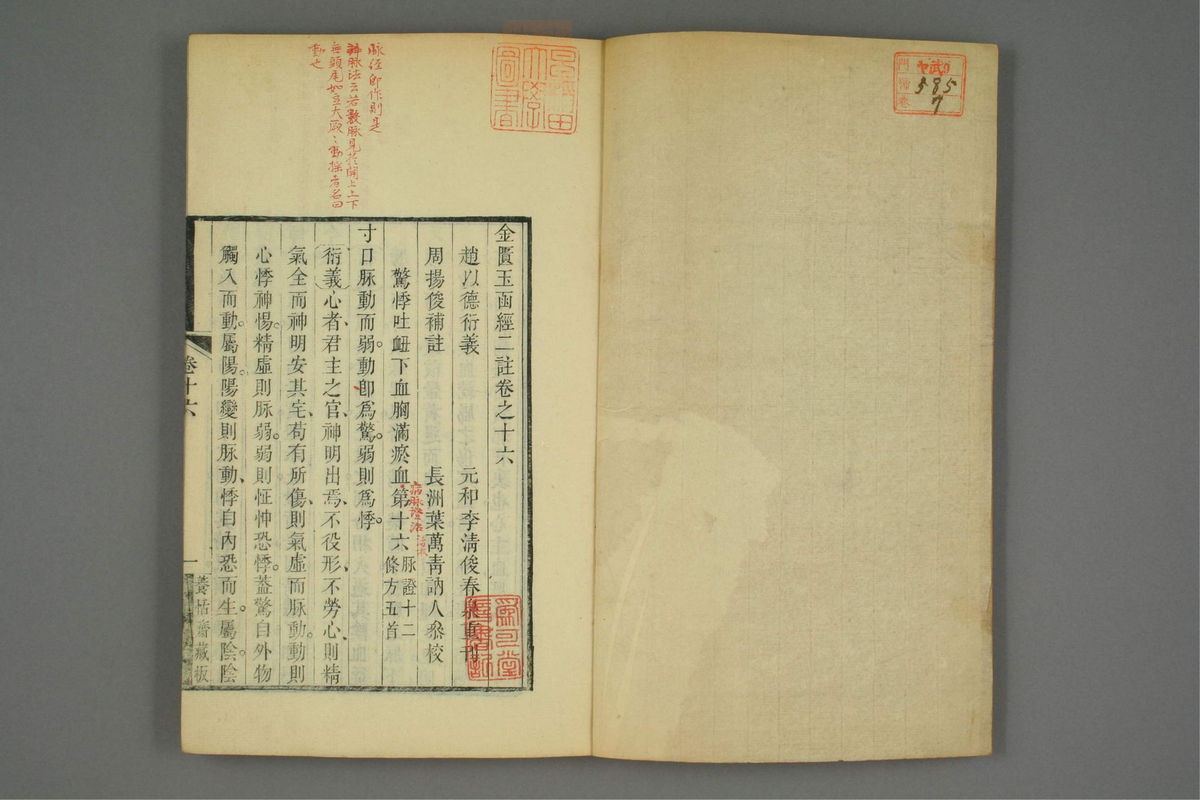 武
門
部
卷
585
7
早稻田
大學
圖書
脉經即作則是
辨脉法云若數脉見於關上上下
無頭尾如豆大厥厥動搖者名曰
動也
金匱玉函經二註卷之十六
趙以德衍義 元和李清俊春泉重刊
周揚俊補註 長洲葉萬青訥人叅校
驚悸吐衄下血胸滿瘀血第十六 脉證十二
條方五首
病脉證治
寸口脉動而弱。動卽爲驚。弱則爲悸。
衍義心者、君主之官、神明出焉、不役形、不勞心、則精
氣全而神明安其宅、苟有所傷、則氣虛而脉動。動則
心悸神惕。精虛則脉弱。弱則怔忡恐悸。蓋驚自外物
觸入而動。屬陽。陽變則脉動、悸自內恐而生。屬陰。陰
卷十六
一
養恬齋藏板